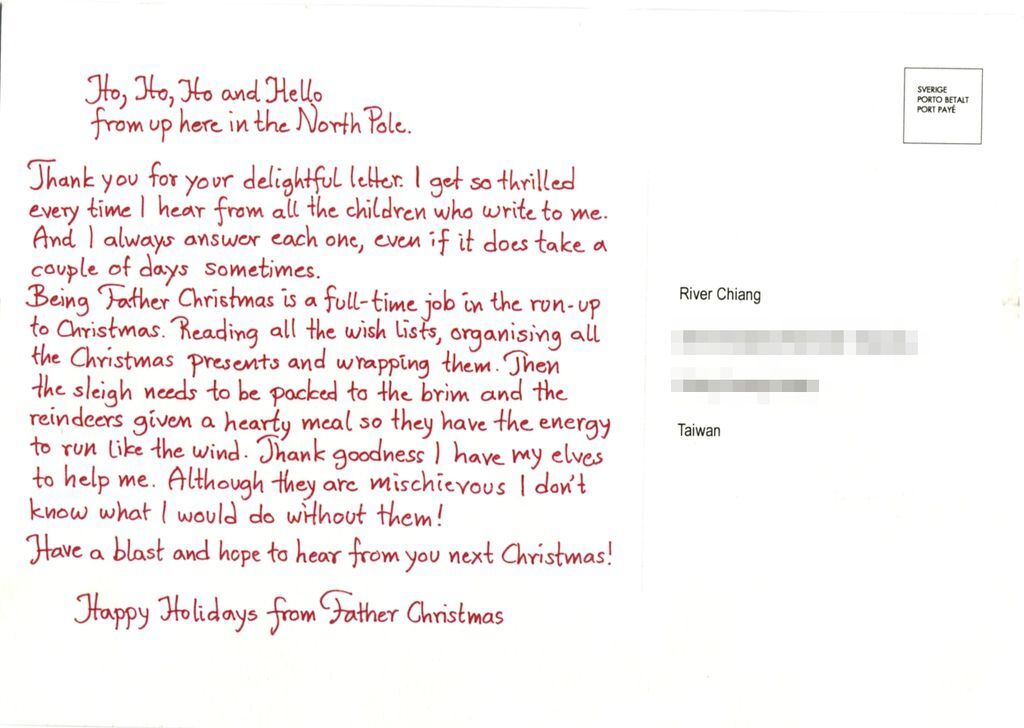 Ho, Ho, Ho and Hello
from up here in the North Pole.
Thank you for your delightful letter. I get so thrilled
every time I hear from all the children who write to me.
And I always answer each one, even if it does take a
couple of days sometimes.
Being Father Christmas is a full-time job in the run-up
to Christmas. Reading all the wish lists, organising all
the Christmas presents and wrapping them. Then
the sleigh needs to be packed to the brim and the
reindeers given a hearty meal so they have the energy
to run like the wind. Thank goodness I have my elves
to help me. Although they are mischievous I don't
know what I would do without them!
Have a blast and hope to hear from you next Christmas!
Happy Holidays from Father Christmas
SVERIGE
PORTO BETALT
PORT PAYÉ
River Chiang
Taiwan